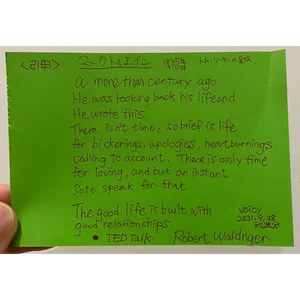 〈引用〉 マークトゥエイン トム・ソーヤの冒険
a more than century ago
He was looking back his life and
He wrote this.
There isn't time, so brief is life
for bickerings, apologies, heartburnings
calling to account. There is only time
for loving, and but an instant
so to speak for that
The good life is built with
good relationships
voicy
2021.9.28
• TED Talk Robert Waldinger